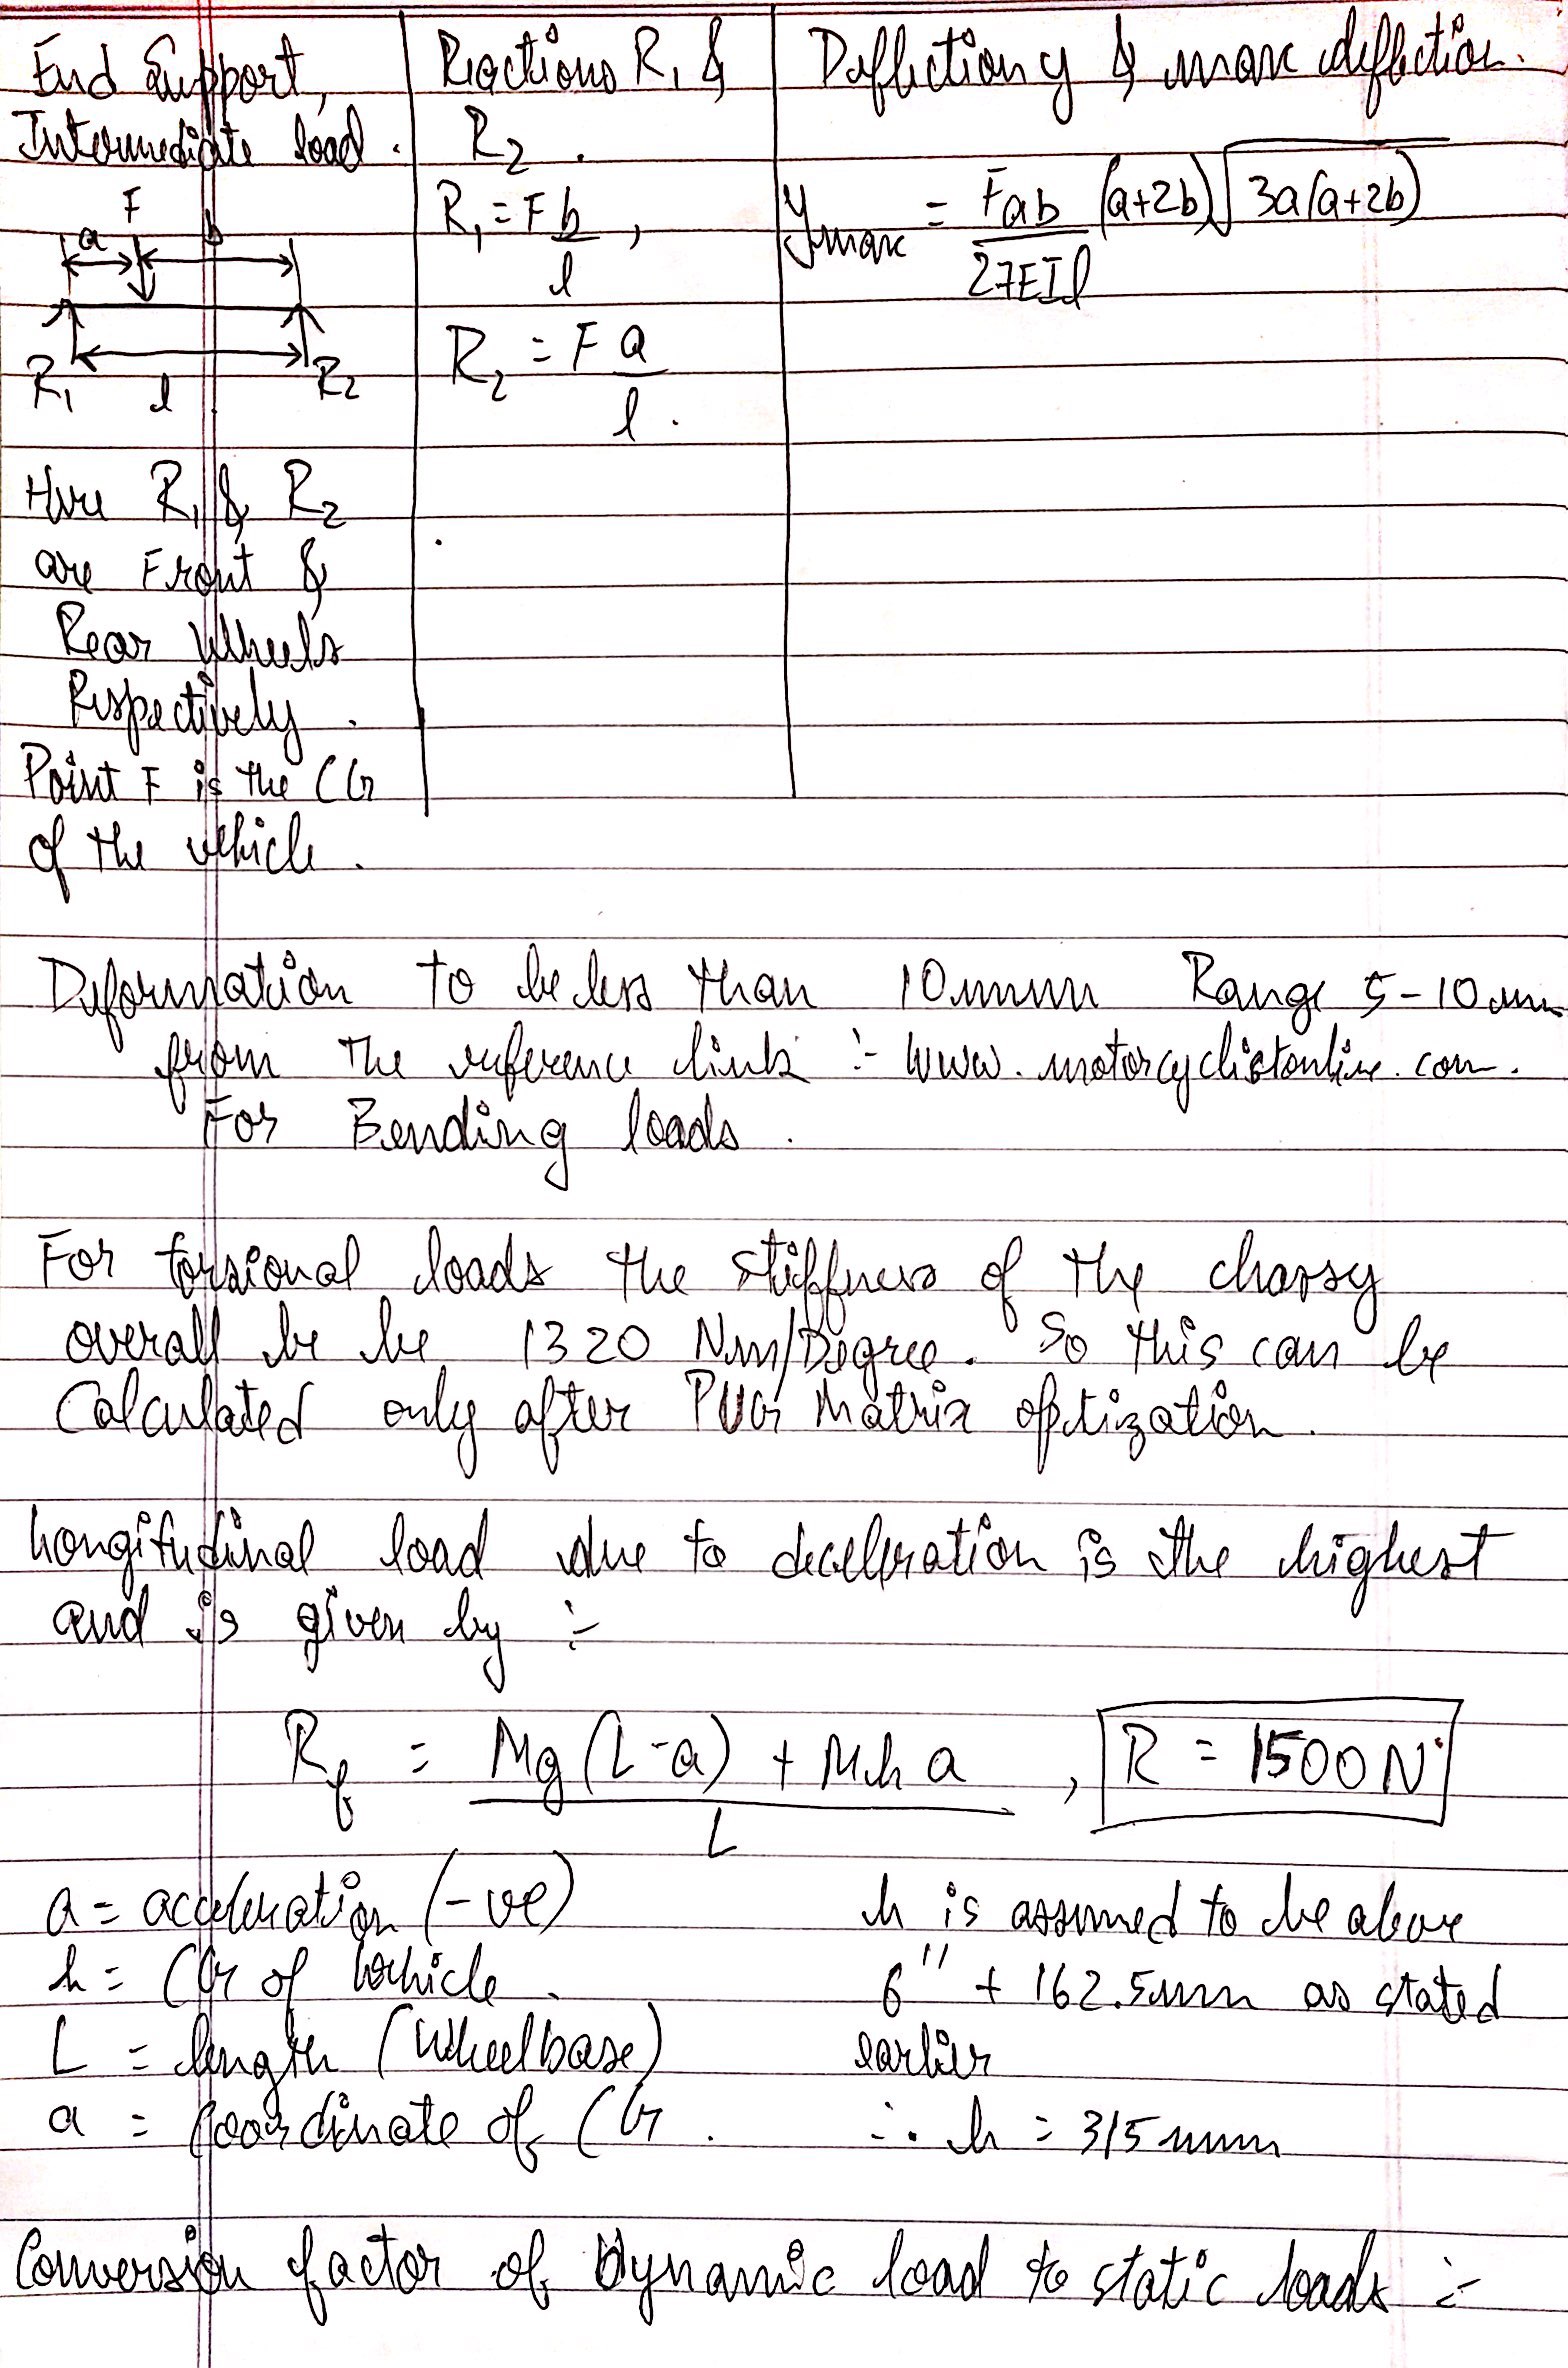 End Support,
Intermediate load.
Reactions R1 &
R2.
Deflection y & max deflection.
F
a b
R1 l R2
R1 = F b/l ,
R2 = F a/l .
ymax = Fab/27EIl (a+2b)√3a(a+2b)
Here R1 & R2
are Front &
Rear Wheels
Respectively.
Point F is the CG
of the vehicle.
Deformation to be less than 10mm Range 5-10mm
from the reference link :- www.motorcyclistonline.com.
For Bending loads.
For torsional loads the stiffness of the chassy
overall be be 1320 Nm/Degree. So this can be
Calculated only after PUG Matrix optization.
Longitudinal load due to deceleration is the highest
and is given by :-
Rf = Mg(L-a) + Mha / L , R = 1500N
a = acceleration (-ve)
h = CG of Vehicle.
L = length (Wheelbase)
a = Coordinate of CG.
h is assumed to be above
6" + 162.5mm as stated
earlier
∴ h = 315mm
Conversion factor of Dynamic load to static loads :-